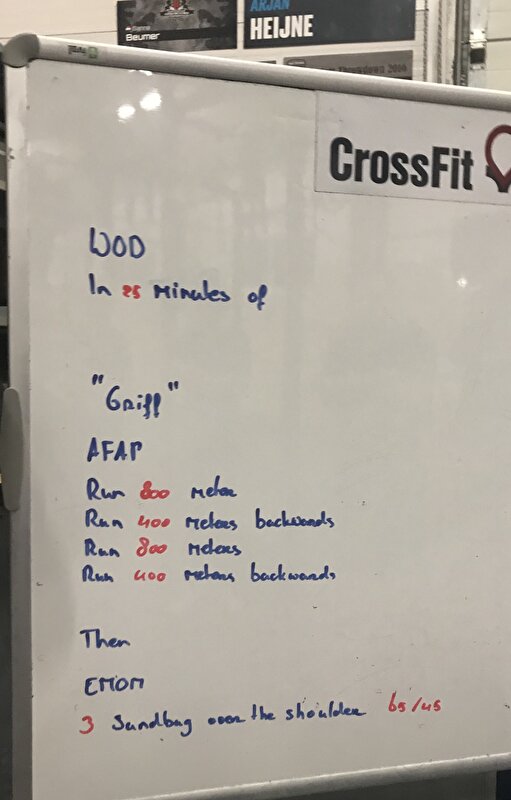 Beumer
ARJAN
HEIJNE
2016
CrossFit
WOD
In 25 Minutes of
"Griff"
AFAP
Run 800 meter
Run 400 meters backwards
Run 800 meters
Run 400 meters backwards
Then
EMOM
3 Sandbag over the shoulder 65/45